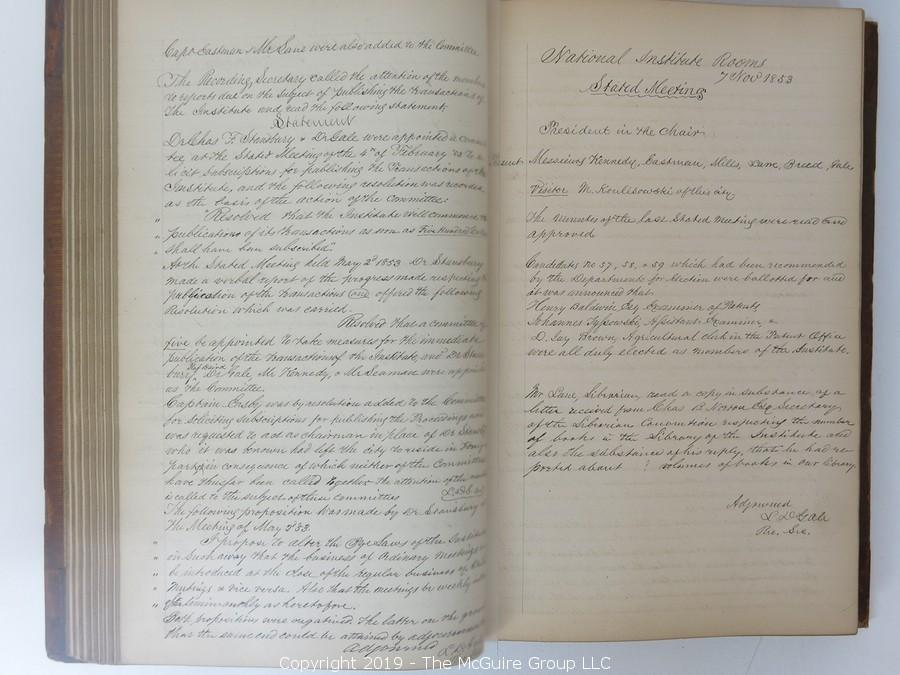 Capt Eastman & Mr Lane were also added to the Committee
The Recording Secretary called the attention of the members
to reports due on the subject of publishing the transactions of
the Institute and read the following statement
Statement
Dr Chas F. Stansbury & Dr Gale were appointed a
tee at the Stated Meeting of the 4th of February 53 to
licit subscriptions for publishing the Transactions of the
Institute, and the following resolution was recorded
as the basis of the action of the committee:
" "Resolved that the Institute will commence the
" publication of its transactions as soon as five hundred
" shall have been subscribed"
At the Stated Meeting held May 2d 1853 Dr Stansbury
made a verbal report of the progress made respecting the
publication of the transactions and offered the following
resolution which was carried.
Resolved that a committee of
five be appointed to take measures for the immediate
publication of the transactions of the Institute, and Dr Stans
bury, Prof Baird Dr Gale, Mr Kennedy, & Mr Seaman were appointed
as the Committee.
Captain Easby was by resolution added to the Committee
for soliciting subscriptions for publishing the Proceedings and
was requested to act as chairman in place of Dr Stansbury
who it was known had left the city to reside in Foreign
parts, in consequence of which neither of the Committees
have thus far been called together the attention of the
is called to the subject of these committees
The following proposition was made by Dr Stansbury
the Meeting of May 2d 53.
" I propose to alter the Bye Laws of the Institute
" in such a way that the business of Ordinary Meetings
" be introduced at the close of the regular business of Stated
" Meetings & vice versa. Also that the meetings be weekly
" of semimonthly as heretofore.
Both propositions were negatived. The latter on the ground
that the same end could be attained by adjournments
Adjourned
National Institute Rooms
7 Nov 1853
Stated Meeting
President in the Chair
Present Messieurs Kennedy, Eastman, Mills, Lane, Breed, Gale
Visitor M. Koulisowski of this city
The minutes of the last Stated meeting were read and
approved
Candidates No 57, 58, & 59 which had been recommended
by the Department for election were ballotted for and
it was announced that
Henry Baldwin Esq Examiner of Patents
Johannes Tyssowski, Assistant Examiner, &
D. Jay Brown, Agricultural clerk in the Patent Office
were all duly elected as members of the Institute.
Mr Lane Librarian, read a copy in substance of a
letter received from Chas B Norton Esq Secretary
of the Librarian Convention respecting the number
of books in the Library of the Institute and
also the substance of his reply, that he had re
ported about ? volumes of books in our library
Adjourned
L D Gale
Rec. Sec.
Copyright 2019 - The McGuire Group LLC